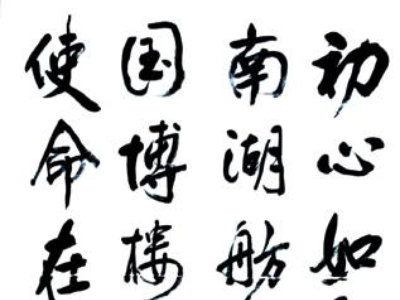 初心如
南湖舫
国博楼
使命在